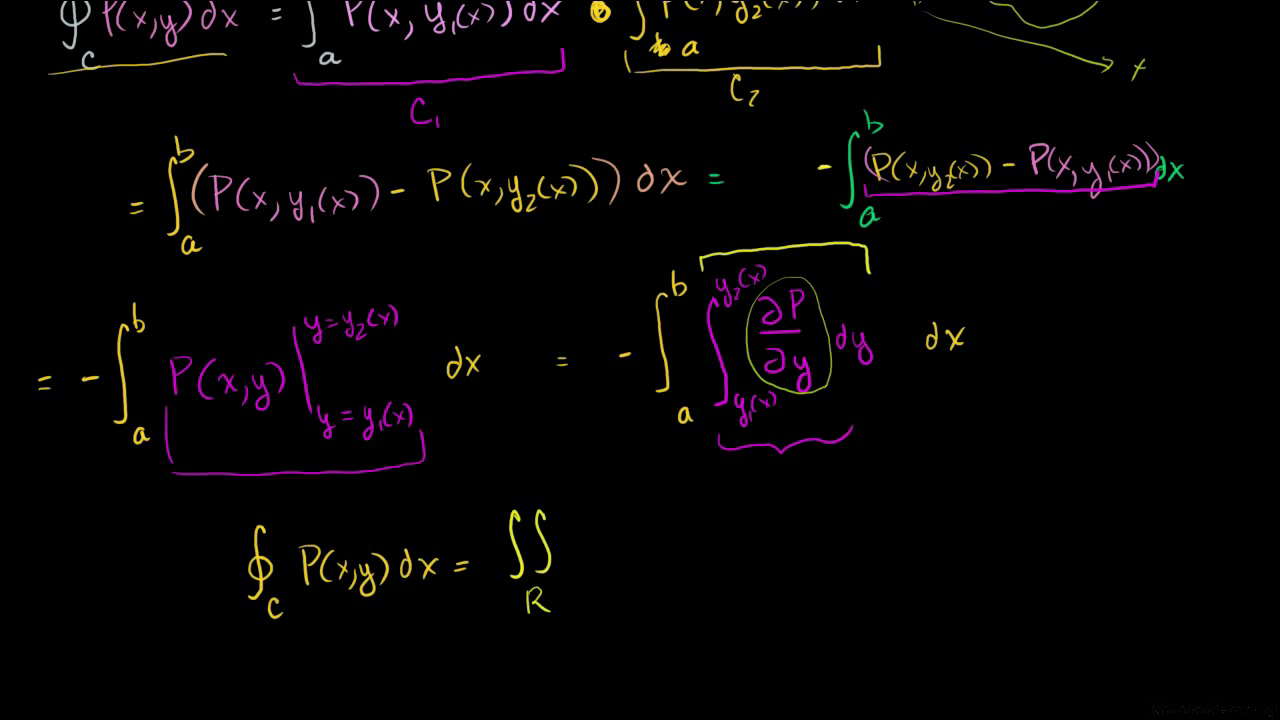 ∮_C P(x,y) dx = ∫_a P(x, y₁(x)) dx ∫_a P(x, y₂(x))
x
C₁ C₂
= ∫_a^b (P(x, y₁(x)) - P(x, y₂(x))) dx = - ∫_a^b (P(x,y₂(x)) - P(x,y₁(x))) dx
= - ∫_a^b P(x,y) |_{y = y₁(x)}^{y = y₂(x)} dx = - ∫_a^b ∫_{y₁(x)}^{y₂(x)} ∂P/∂y dy dx
∮_C P(x,y) dx = ∬_R